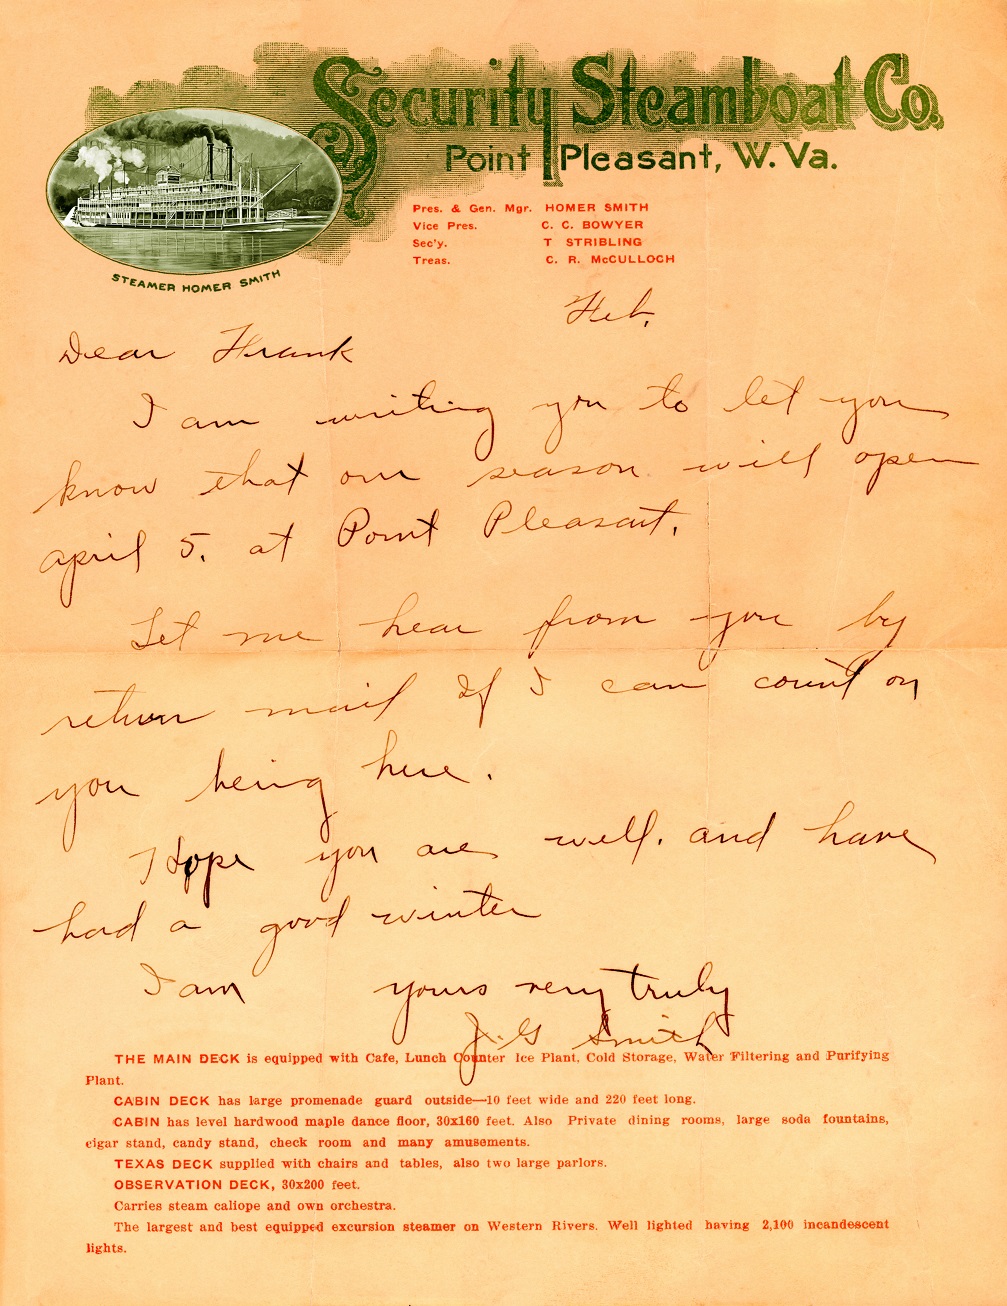 Security Steamboat Co.
Point Pleasant, W. Va.
STEAMER HOMER SMITH
Pres. & Gen. Mgr. HOMER SMITH
Vice Pres. C. C. BOWYER
Sec'y. T STRIBLING
Treas. C. R. McCULLOCH
Feb.
Dear Frank
I am writing you to let you
know that our season will open
april 5. at Point Pleasant.
Let me hear from you by
return mail If I can count on
you being here.
I Hope you are well. and have
had a good winter
I am yours very truly
J. G Smith
THE MAIN DECK is equipped with Cafe, Lunch Counter Ice Plant, Cold Storage, Water Filtering and Purifying
Plant.
CABIN DECK has large promenade guard outside—10 feet wide and 220 feet long.
CABIN has level hardwood maple dance floor, 30x160 feet. Also Private dining rooms, large soda fountains,
cigar stand, candy stand, check room and many amusements.
TEXAS DECK supplied with chairs and tables, also two large parlors.
OBSERVATION DECK, 30x200 feet.
Carries steam caliope and own orchestra.
The largest and best equipped excursion steamer on Western Rivers. Well lighted having 2,100 incandescent
lights.